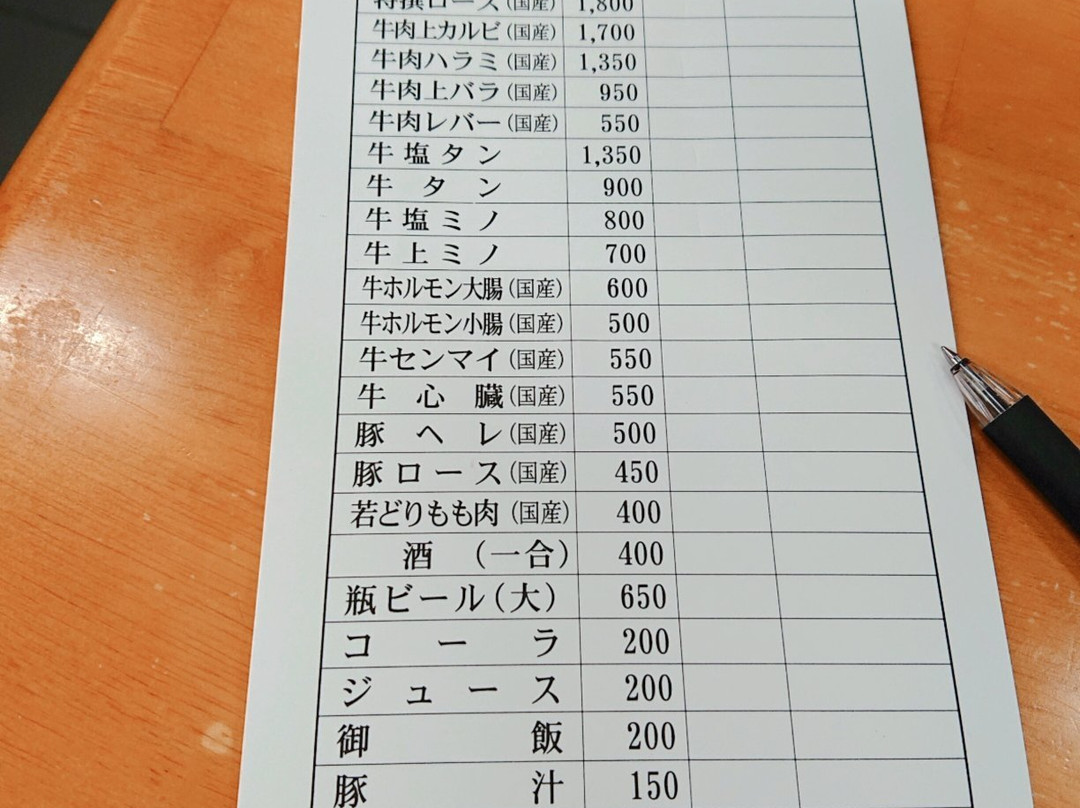 特撰ロース(国産) 1,800
牛肉上カルビ(国産) 1,700
牛肉ハラミ(国産) 1,350
牛肉上バラ(国産) 950
牛肉レバー(国産) 550
牛塩タン 1,350
牛タン 900
牛塩ミノ 800
牛上ミノ 700
牛ホルモン大腸(国産) 600
牛ホルモン小腸(国産) 500
牛センマイ(国産) 550
牛心臓(国産) 550
豚ヘレ(国産) 500
豚ロース(国産) 450
若どりもも肉(国産) 400
酒(一合) 400
瓶ビール(大) 650
コーラ 200
ジュース 200
御飯 200
豚汁 150